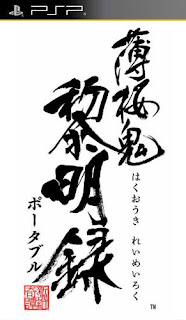 PSP
薄桜鬼
黎明録
はくおうき れいめいろく
ポータブル
TM